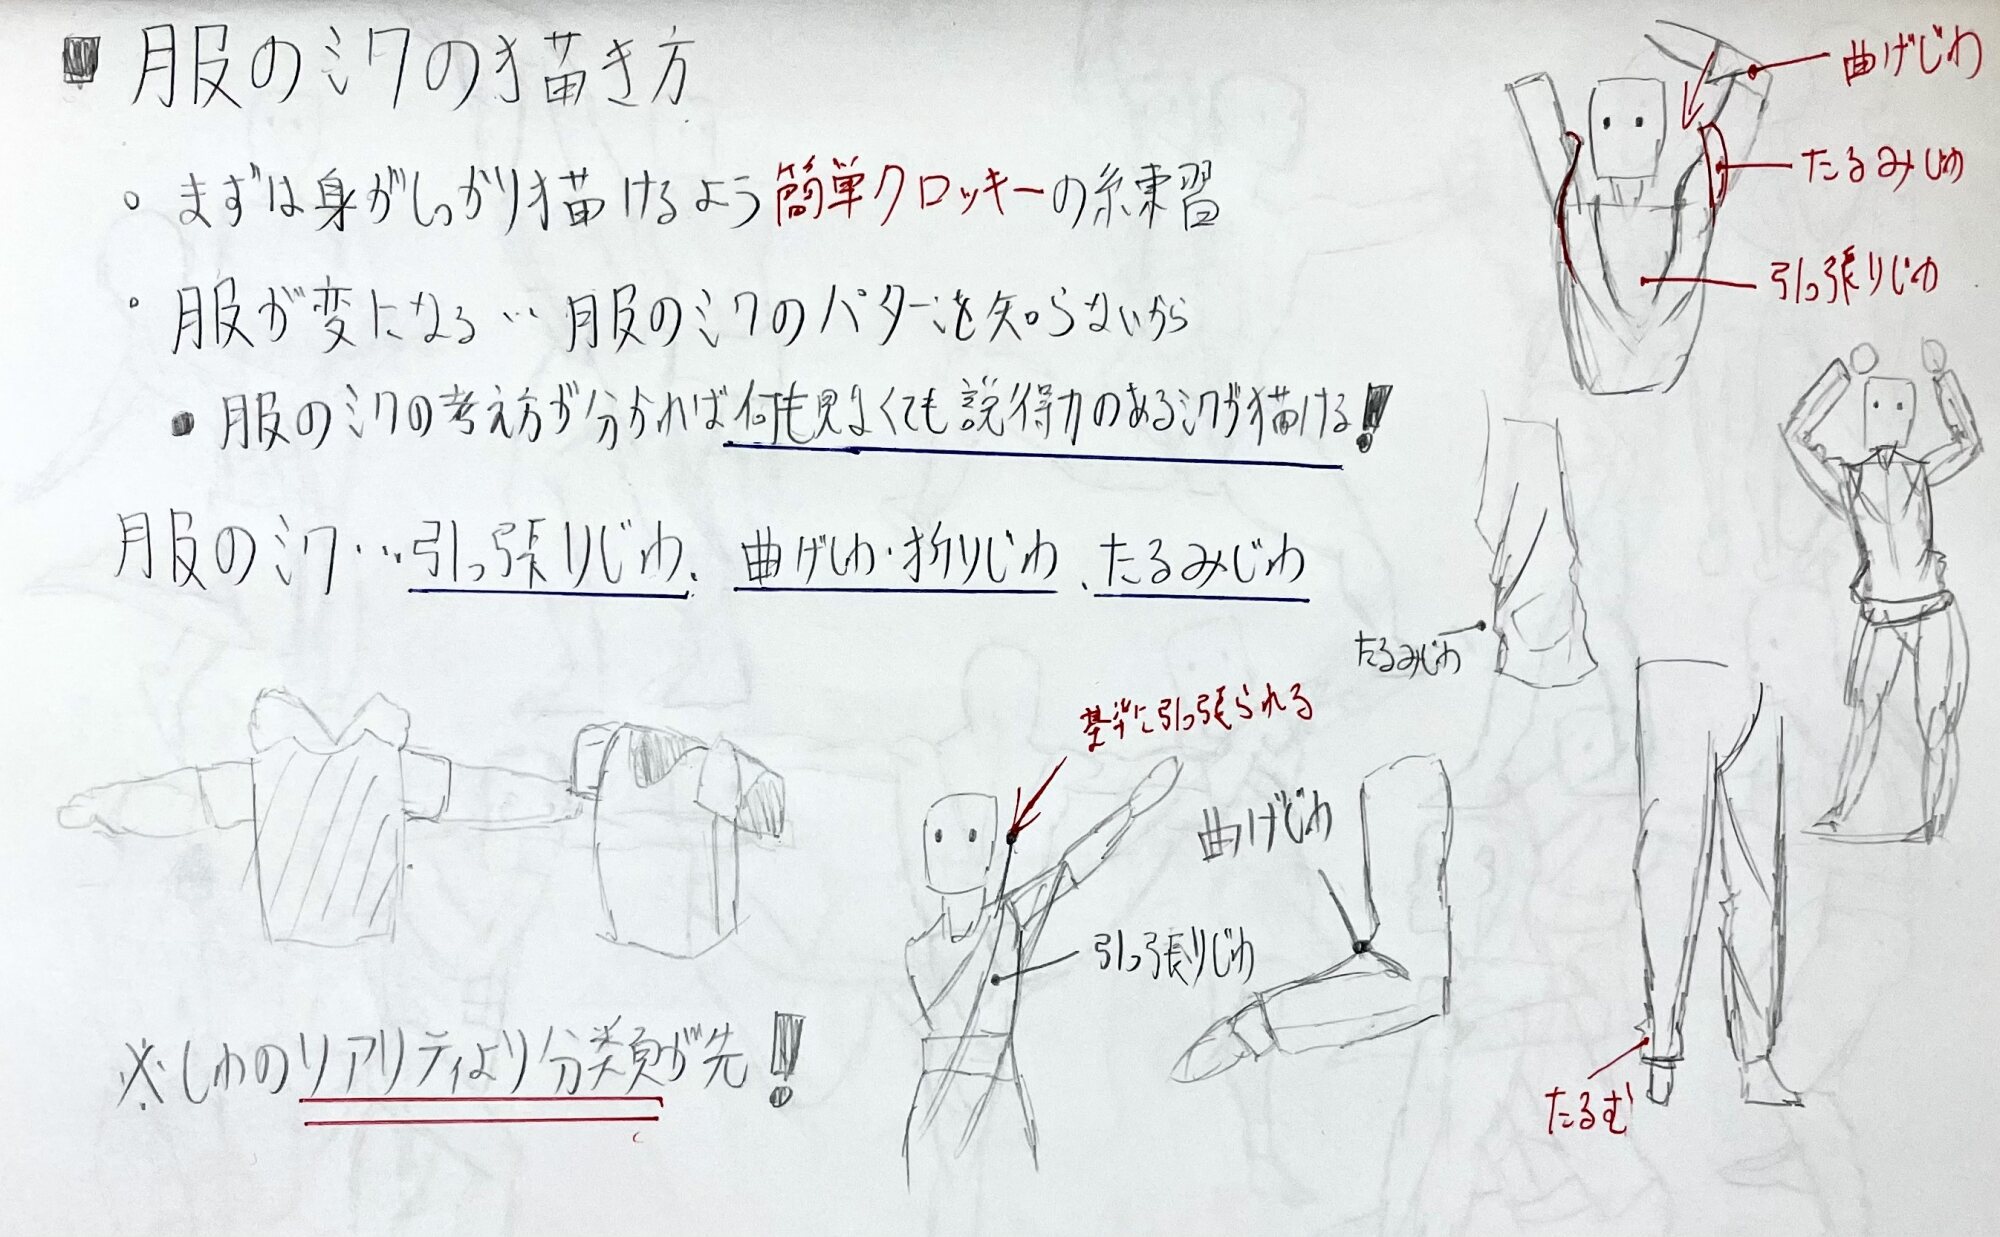 服のシワの描き方
まずは身がしっかり描けるよう簡単クロッキーの練習
服が変になる…服のシワのパターンを知らないから
服のシワの考え方が分かれば何も見なくても説得力のあるシワが描ける!
服のシワ…引っ張りじわ、曲げじわ・折りじわ、たるみじわ
曲げじわ
たるみじわ
引っ張りじわ
たるみじわ
基準に引っ張られる
曲げじわ
引っ張りじわ
たるむ
※しわのリアリティより分類が先!